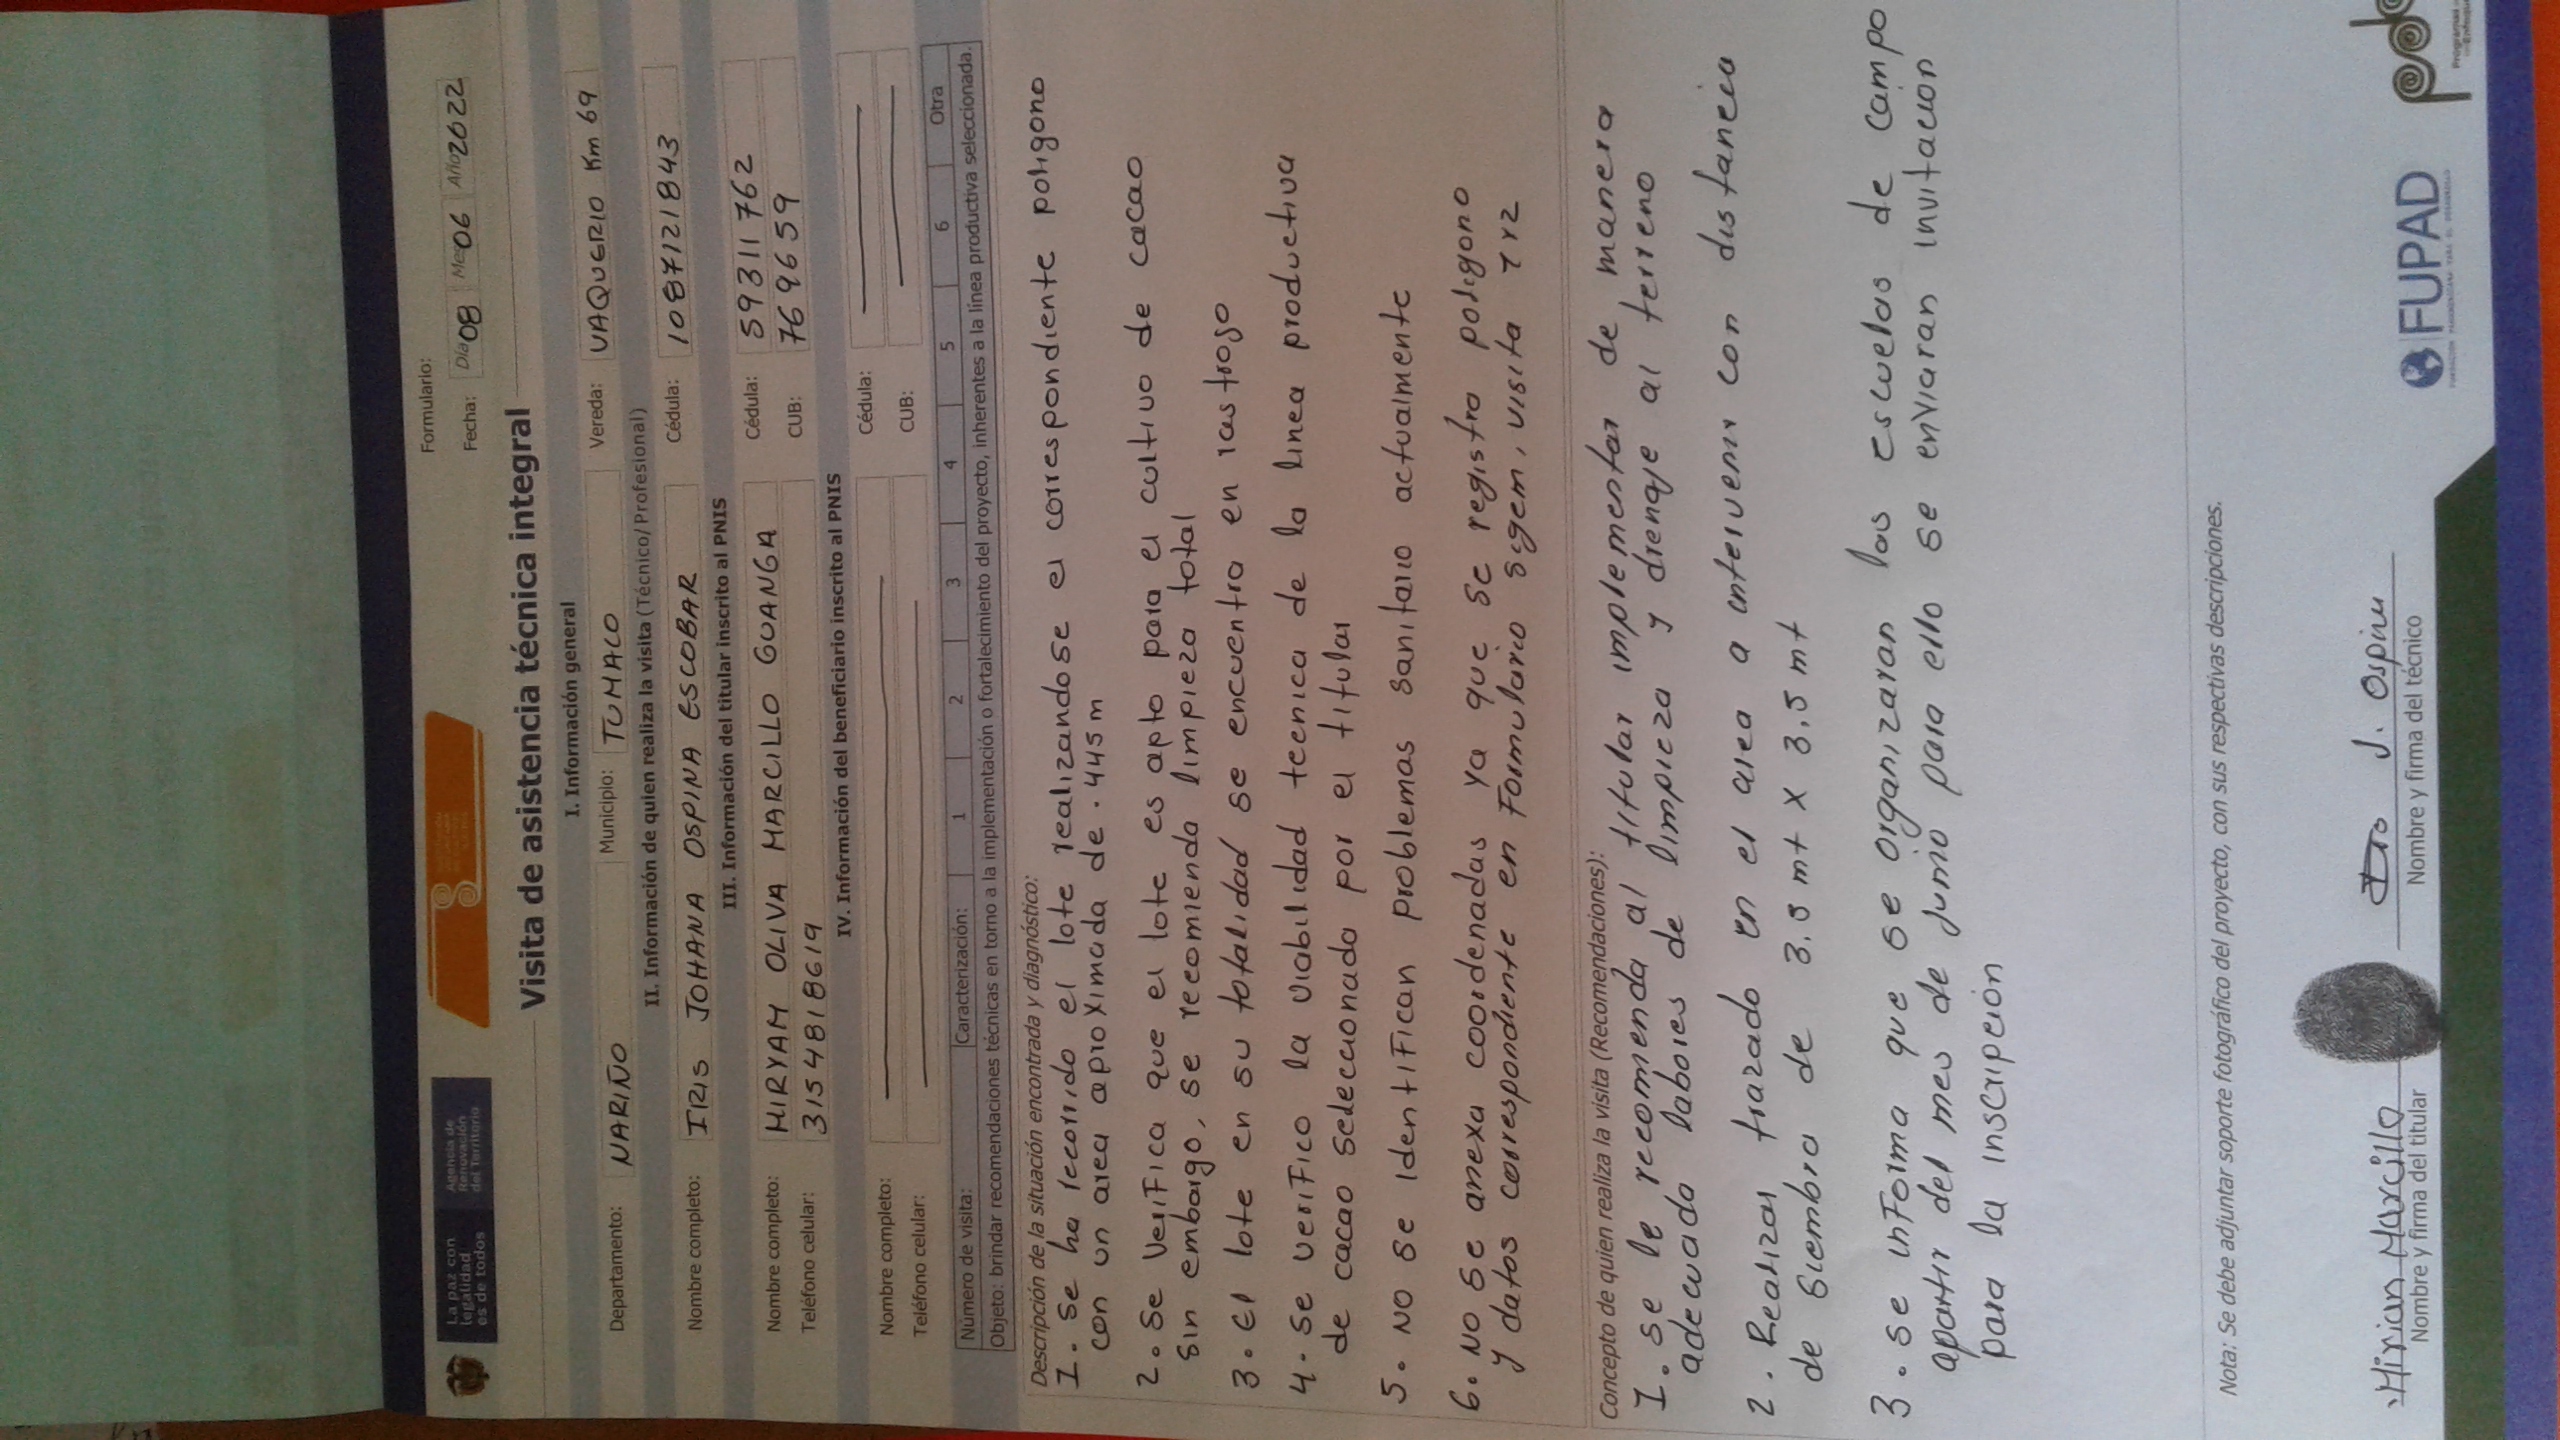 La paz con
legalidad
es de todos
Agencia de
Renovación
del Territorio
Formulario:
Fecha: Día 08 Mes 06 Año 2022
Visita de asistencia técnica integral
I. Información general
Departamento: NARIÑO Municipio: TUMACO Vereda: VAQUERIO Km 69
II. Información de quien realiza la visita (Técnico/Profesional)
Nombre completo: IRIS JOHANA OSPINA ESCOBAR Cédula: 1087121843
III. Información del titular inscrito al PNIS
Nombre completo: MIRYAM OLIVA MARCILLO GUANGA Cédula: 59311762
Teléfono celular: 3154818619 CUB: 7696659
IV. Información del beneficiario inscrito al PNIS
Nombre completo: Cédula:
Teléfono celular: CUB:
Número de visita: Caracterización: 1 2 3 4 5 6 Otra
Objeto: brindar recomendaciones técnicas en torno a la implementación o fortalecimiento del proyecto, inherentes a la línea productiva seleccionada.
Descripción de la situación encontrada y diagnóstico:
1. se ha recorrido el lote realizandose el correspondiente poligono
con un area aproximada de . 445 m
2. se verifica que el lote es apto para el cultivo de cacao
sin embargo, se recomienda limpieza total
3. el lote en su totalidad se encuentra en rastrojo
4. se verifico la viabilidad tecnica de la linea productiva
de cacao seleccionada por el titular
5. NO se identifican problemas sanitario actualmente
6. NO se anexa coordenadas ya que se registro poligono
y datos correspondiente en Formulario sigem, visita 1 y 2
Concepto de quien realiza la visita (Recomendaciones):
1. se le recomenda al titular implementar de manera
adecuada labores de limpieza y drenaje al terreno
2. Realizar trazado en el area a intervenir con distancia
de siembra de 3.5 mt x 3.5 mt
3. se informa que se organizaran las escuelas de campo
apartir del mes de junio para ello se enviaran invitacion
para la inscripción
Nota: Se debe adjuntar soporte fotográfico del proyecto, con sus respectivas descripciones.
Mirian Marcillo
Nombre y firma del titular
J. Ospina
Nombre y firma del técnico
FUPAD